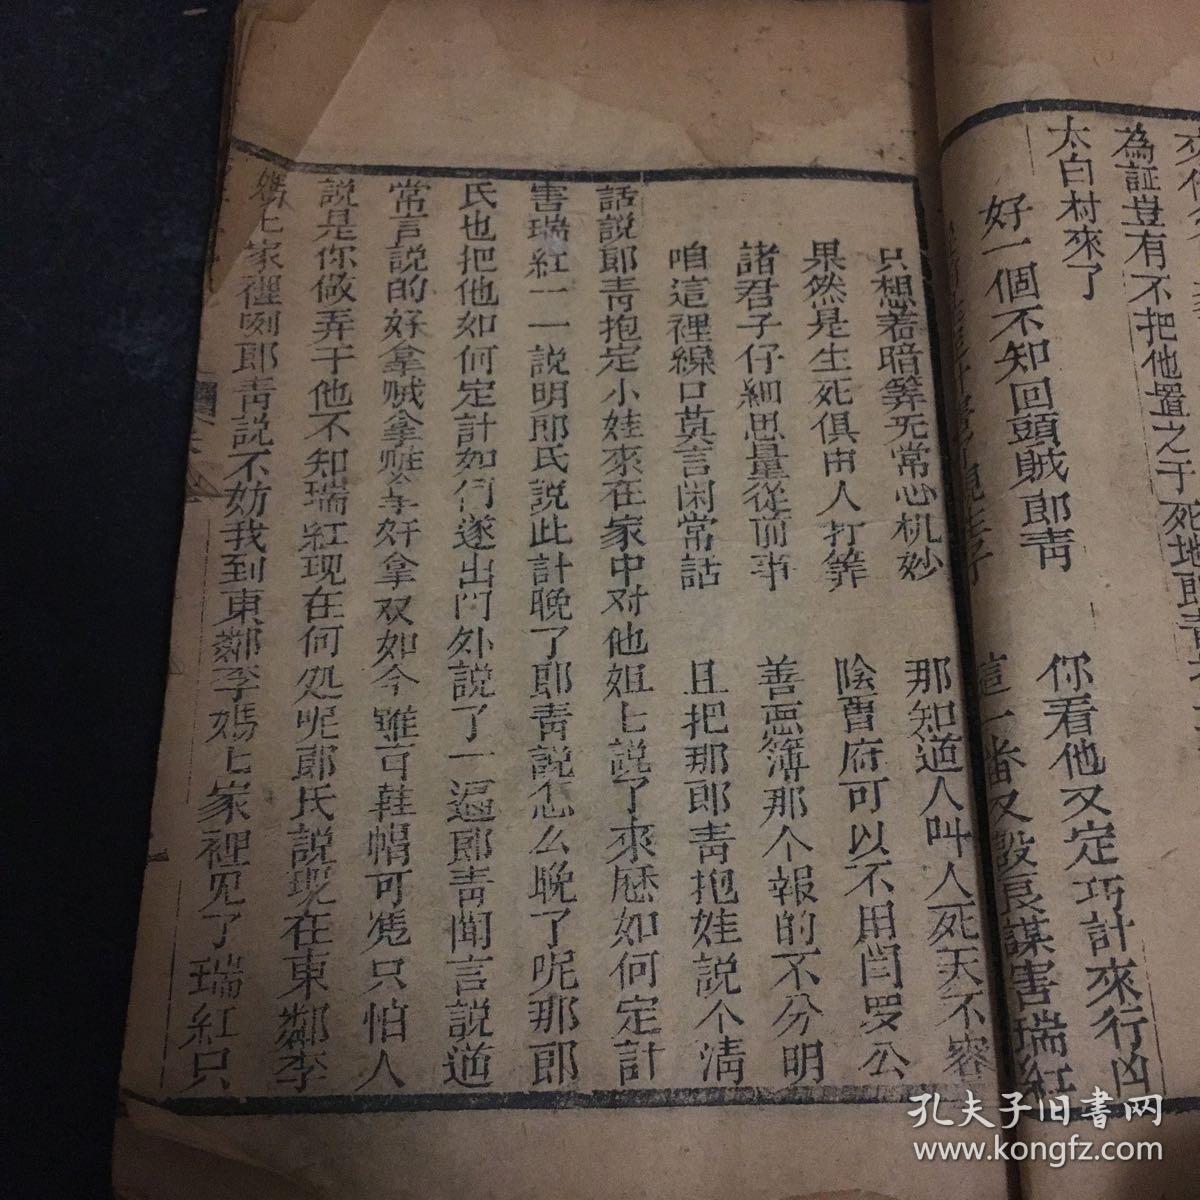 為証豈有不把他置之于死地郎青
太白村來了
好一個不知回頭賊郎青　你看他又定巧計來行凶
這一番又設良謀害瑞紅
只想着暗筭无常心机妙　那知道人叫人死天不容
果然是生死俱由人打筭　陰曹府可以不用閆罗公
諸君子仔細思量從前事　善惡簿那个報的不分明
咱這裡縧口莫言闲常話　且把那郎青抱娃説个清
話説郎青抱定小娃來在家中对他姐七説了來歷如何定計
害瑞紅一一説明郎氏説此計晚了郎青説怎么晚了呢那郎
氏也把他如何定計如何遂出门外説了一遍郎青聞言説道
常言説的好拿贼拿賍拿奸拿双如今雖言鞋帽可凭只怕人
説是你做弄于他不知瑞紅现在何処呢郎氏説现在東鄰李
媽七家裡咧郎青説不妨我到東鄰李媽七家裡见了瑞紅只
孔夫子旧書网
www.kongfz.com